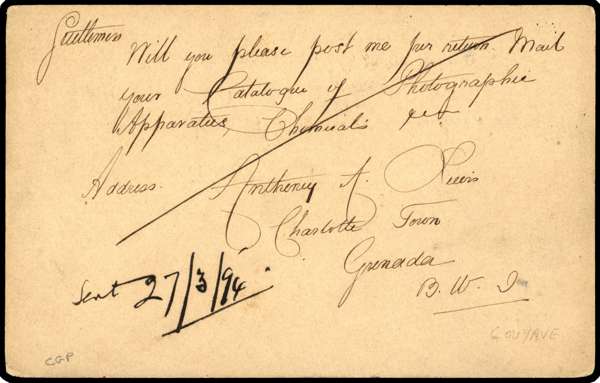 Gentlemen
Will you please post me per return Mail
your Catalogue of Photographic
Apparatus, Chemicals &c
Address. Antheney A. Lewis
Charlotte Town
Grenada
B. W. I
Sent 27/3/94
GOUYAVE
CGP